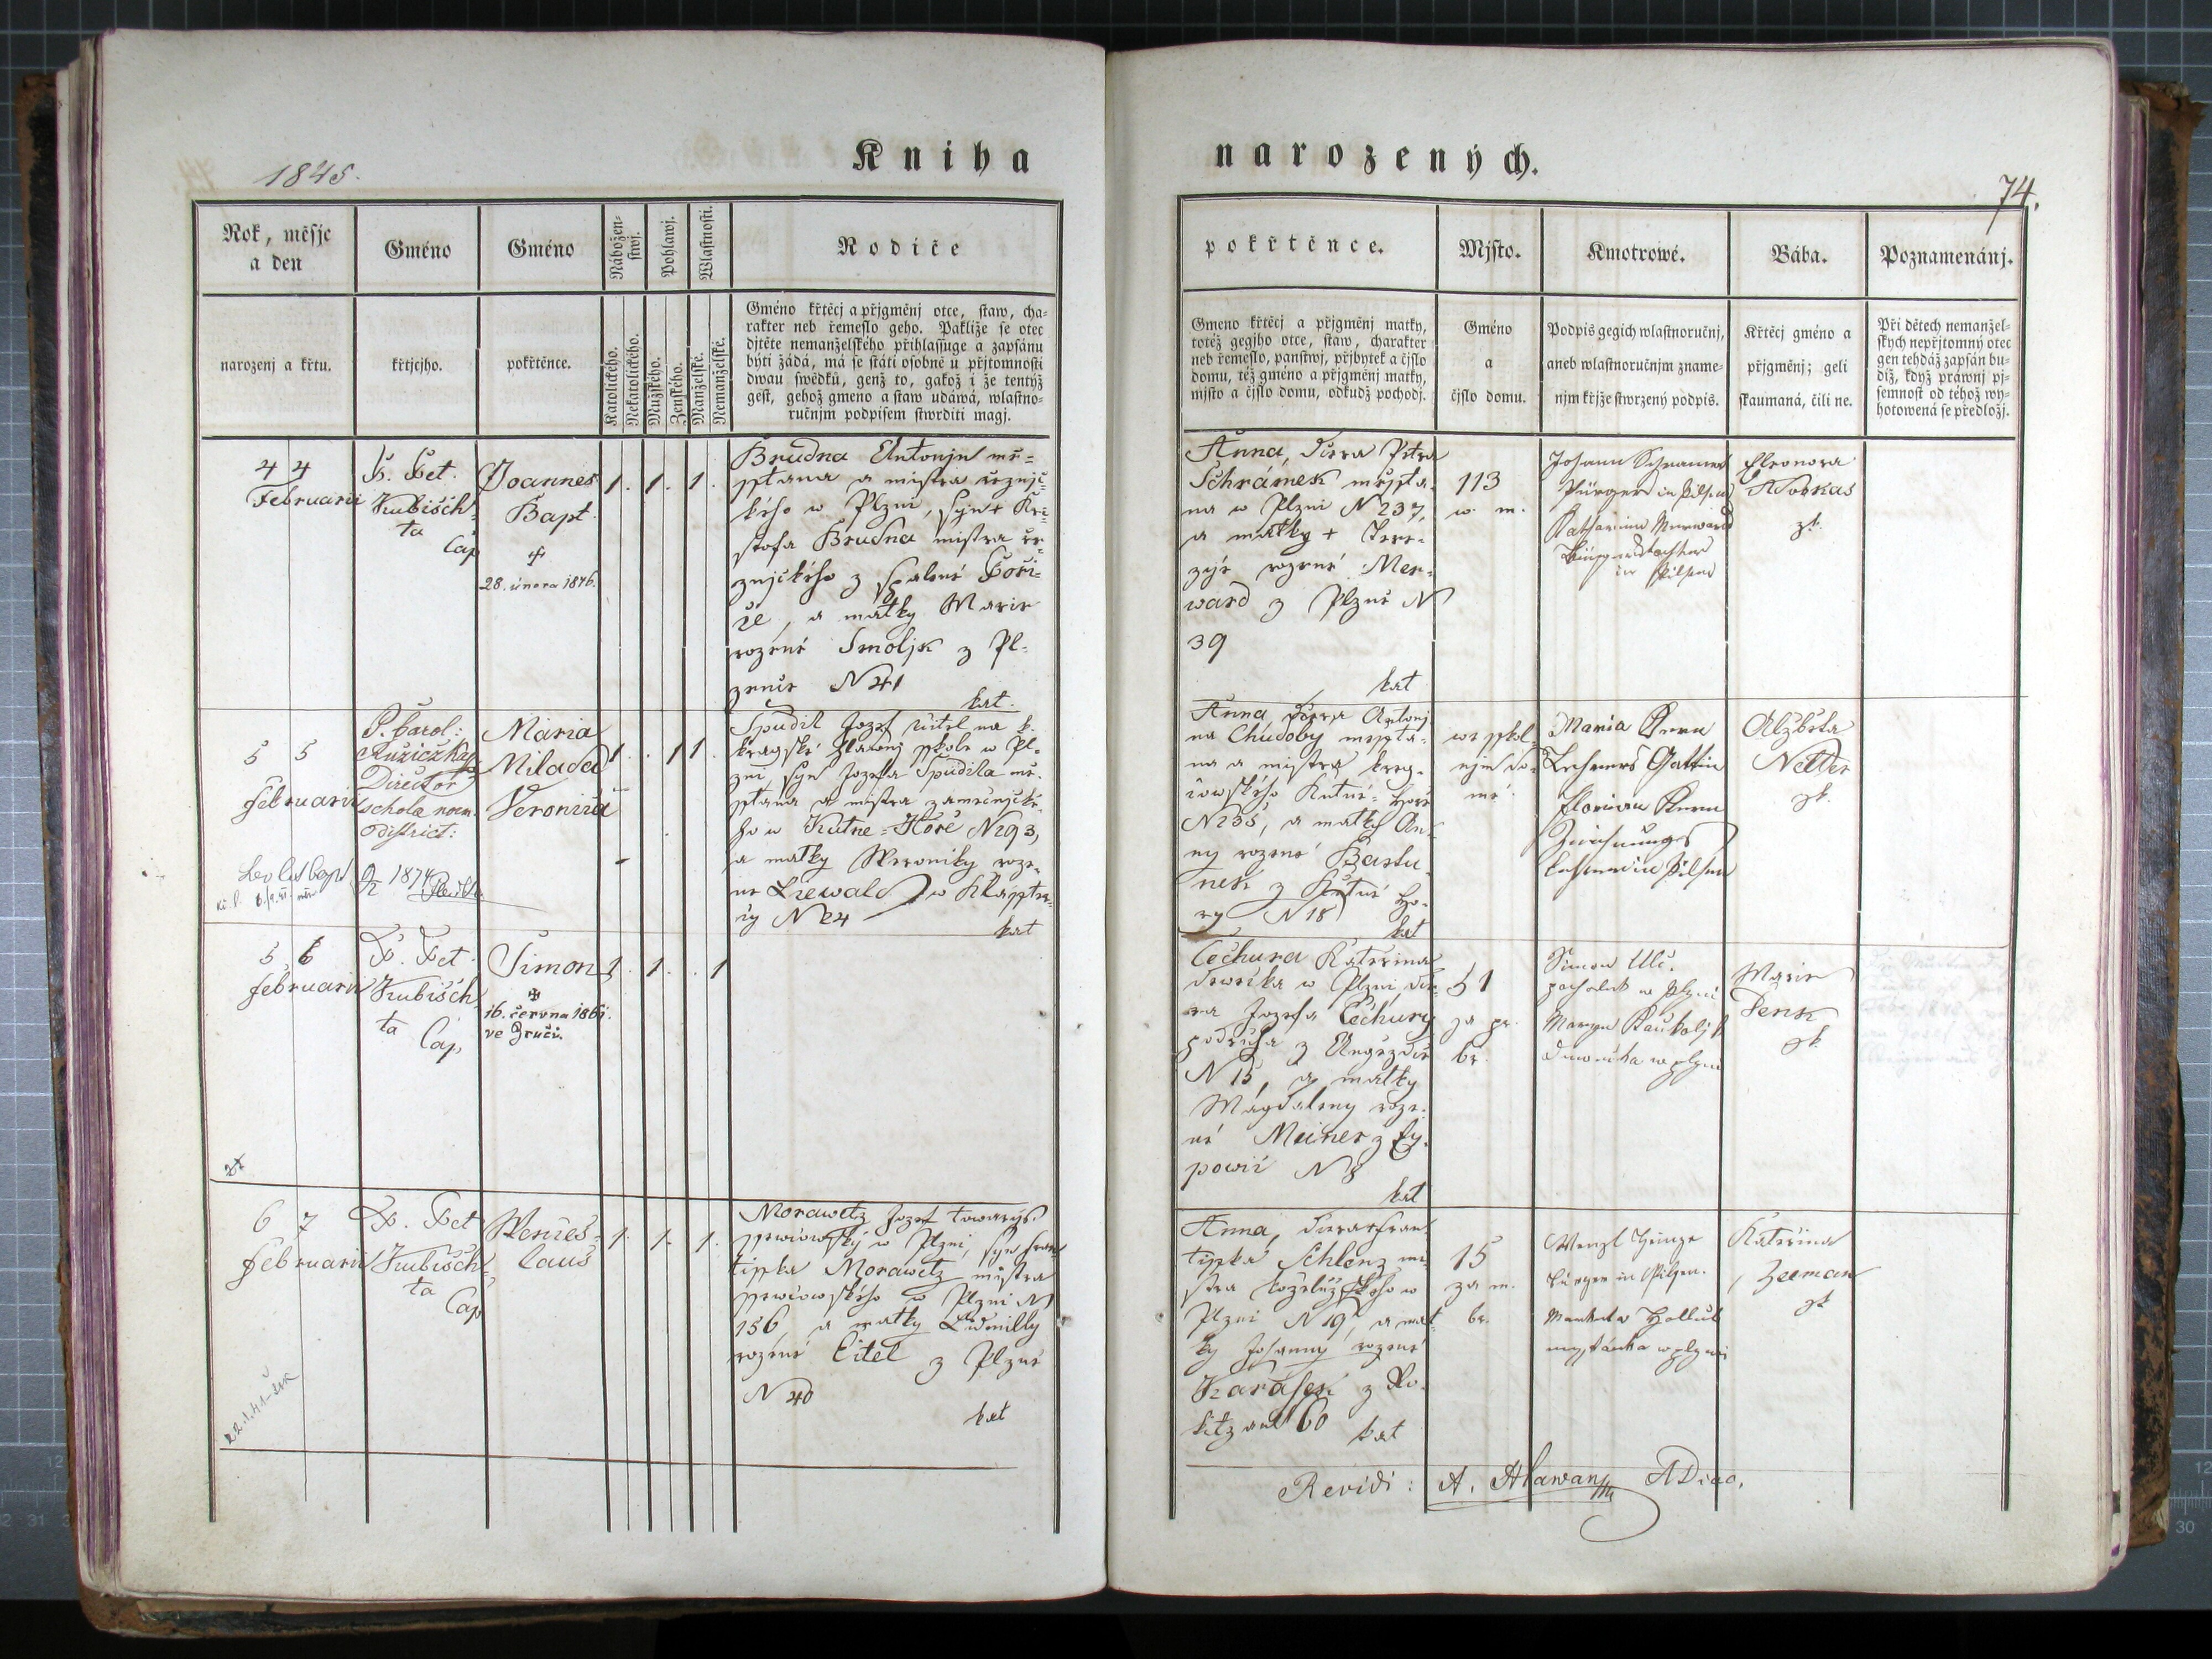 1845.
Kniha
narozených.
74.
Rok, měsjc
a den
narozenj a křtu.
Gméno
křtjcjho.
Gméno
pokřtěnce.
Nábožen-
stwj.
Katolického.
Nekatolického.
Pohlawj.
Mužského.
Ženského.
Wlastnosti.
Manželské.
Nemanželské.
Rodiče
Gméno křtěcj a přjgměnj otce, staw, cha-
rakter neb řemeslo geho. Pakliže se otec
djtěte nemanželského přihlassuge a zapsánu
býti žádá, má se státi osobně u přjtomnosti
dwau swědků, genž to, gakož i že tentýž
gest, gehož gmeno a staw udáwá, wlastno-
ručnjm podpisem stwrditi magj.
pokřtěnce.
Gmeno křtěcj a přjgměnj matky,
totéž gegjho otce, staw, charakter
neb řemeslo, panstwj, přjbytek a čjslo
domu, též gméno a přjgměnj matky,
mjsto a čjslo domu, odkudž pochodj.
Mjsto.
Gméno
a
čjslo domu.
Kmotrowé.
Podpis gegich wlastnoručnj,
aneb wlastnoručnjm zname-
njm křjže stwrzený podpis.
Bába.
Křtěcj gméno a
přjgměnj; geli
skaumaná, čili ne.
Poznamenánj.
Při dětech nemanžel-
ských nepřjtomný otec
gen tehdáž zapsán bu-
diž, když práwnj pj-
semnost od téhož wy-
hotowená se předložj.
4 4
Februarii
P. Pet.
Kubisch-
ta
Cap
Joannes
Bapt.
28. února 1876.
1. 1. 1.
Brudna Antonjn mě-
sstana a mistra řeznjc-
kého w Plzni, syn + Kri-
stofa Brudna mistra ře-
znjckého z Spalené Poři-
če, a matky Marie
rozené Smoljk z Pl-
zeně N 41
kat.
Anna, dcera Petra
Schrámek měssta-
na w Plzni N 237,
a matky + Tere-
zye rozené Mer-
ward z Plzně N
39
kat
113
w. m.
Johann Schrammek
Bürger in Pilsen
Katharina Merward
Bürgerstochter
in Pilsen
Eleonora
zk.
5 5
Februarii
P. Carol:
Ružiczka
Director
schola norm.
district:
Maria
Milada
Veronica
1. 1 1.
Spudil Jozef učitel na k.
kragské hlawnj sskole w Pl-
zni, syn Jozefa Spudila mě-
sstana a mistra zámečnjcké-
ho w Kutné-Hoře N 293,
a matky Weroniky roze-
né Liewald w
N 24
kat
Anna, dcera Antonj-
na Chudoby měssta-
na a mistra kreg-
čowského Kutné-Hoře
N 235, a matky An-
ny rozené
z Kutné Ho-
ry N 18
kat
we sskol-
njm do-
mě.
Maria
Lehrers Gattin
Florian
Zeichnungs
Lehrer in Pilsen
Alžběta
zk.
1874
5 6
Februarii
P. Pet.
Kubisch
ta Cap
Simon
16. června 1861.
ve Zruči.
1. 1. 1
Čechura Kateřina
děwečka w Plzni, dce-
ra Jozefa Čechury
podruha z Augezda
N 15, a matky
Magdaleny roze-
né Meiner z Ly-
powic N 8
kat
51
za pr.
br.
Simon Ulč.
pacholek w Plzni
děwečka w plzni
Marie
Penk
zk
6 7
Februarii
P. Pet
Kubisch
ta
Cap
Wences-
laus
1. 1. 1.
Morawetz Jozef towaryš
ssewcowský w Plzni, syn Fran-
tisska Morawetz mistra
ssewcowského w Plzni N
156 a matky Ludmilly
rozené Eitel z Plzně
N 40
kat
Anna, dcera + Fran-
tisska Schlenz mi-
stra koželužského w
Plzni N 19, a mat-
ky Johanny rozené
Karásek z Ro-
kitzan 60
kat
15
za m.
br.
Wenzl
Bürger in Pilsen.
Markéta Hollub
messtanka w plzni
Kateřina
Zeeman
zk
22.1.41
Revidi: A. Hlawan